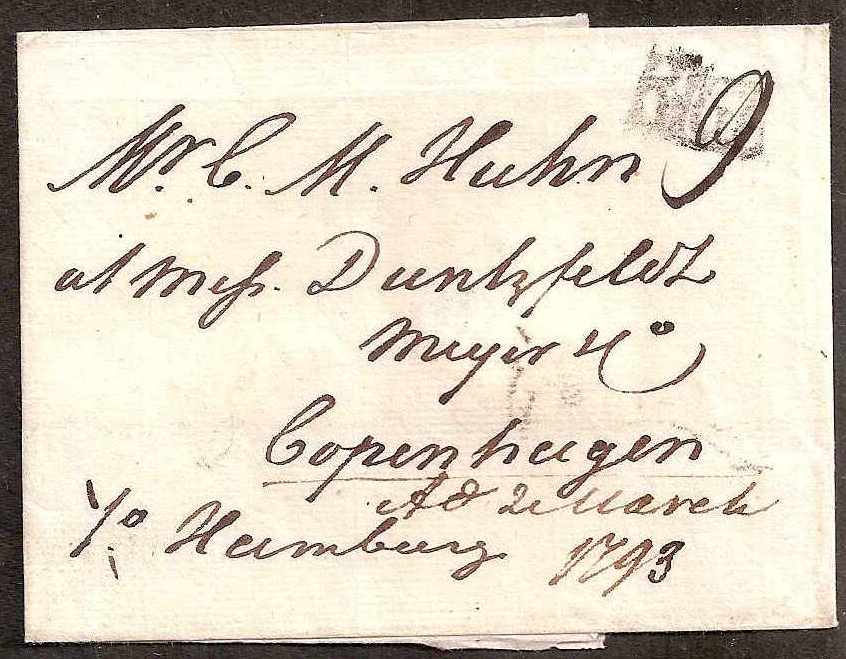 9
Mr. C. M. Huhn
at Mess. Duntzfeldt
Meyer & Co
Copenhagen
Ad 2 March
1793
p Hamburg